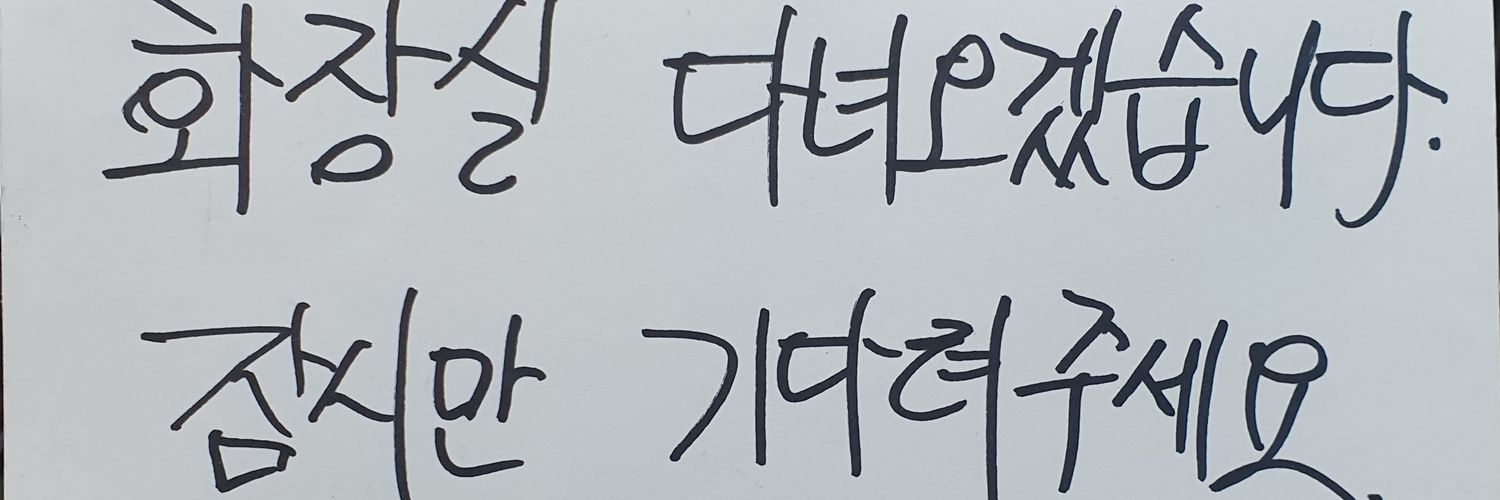 화장실 다녀오겠습니다.
잠시만 기다려주세요.